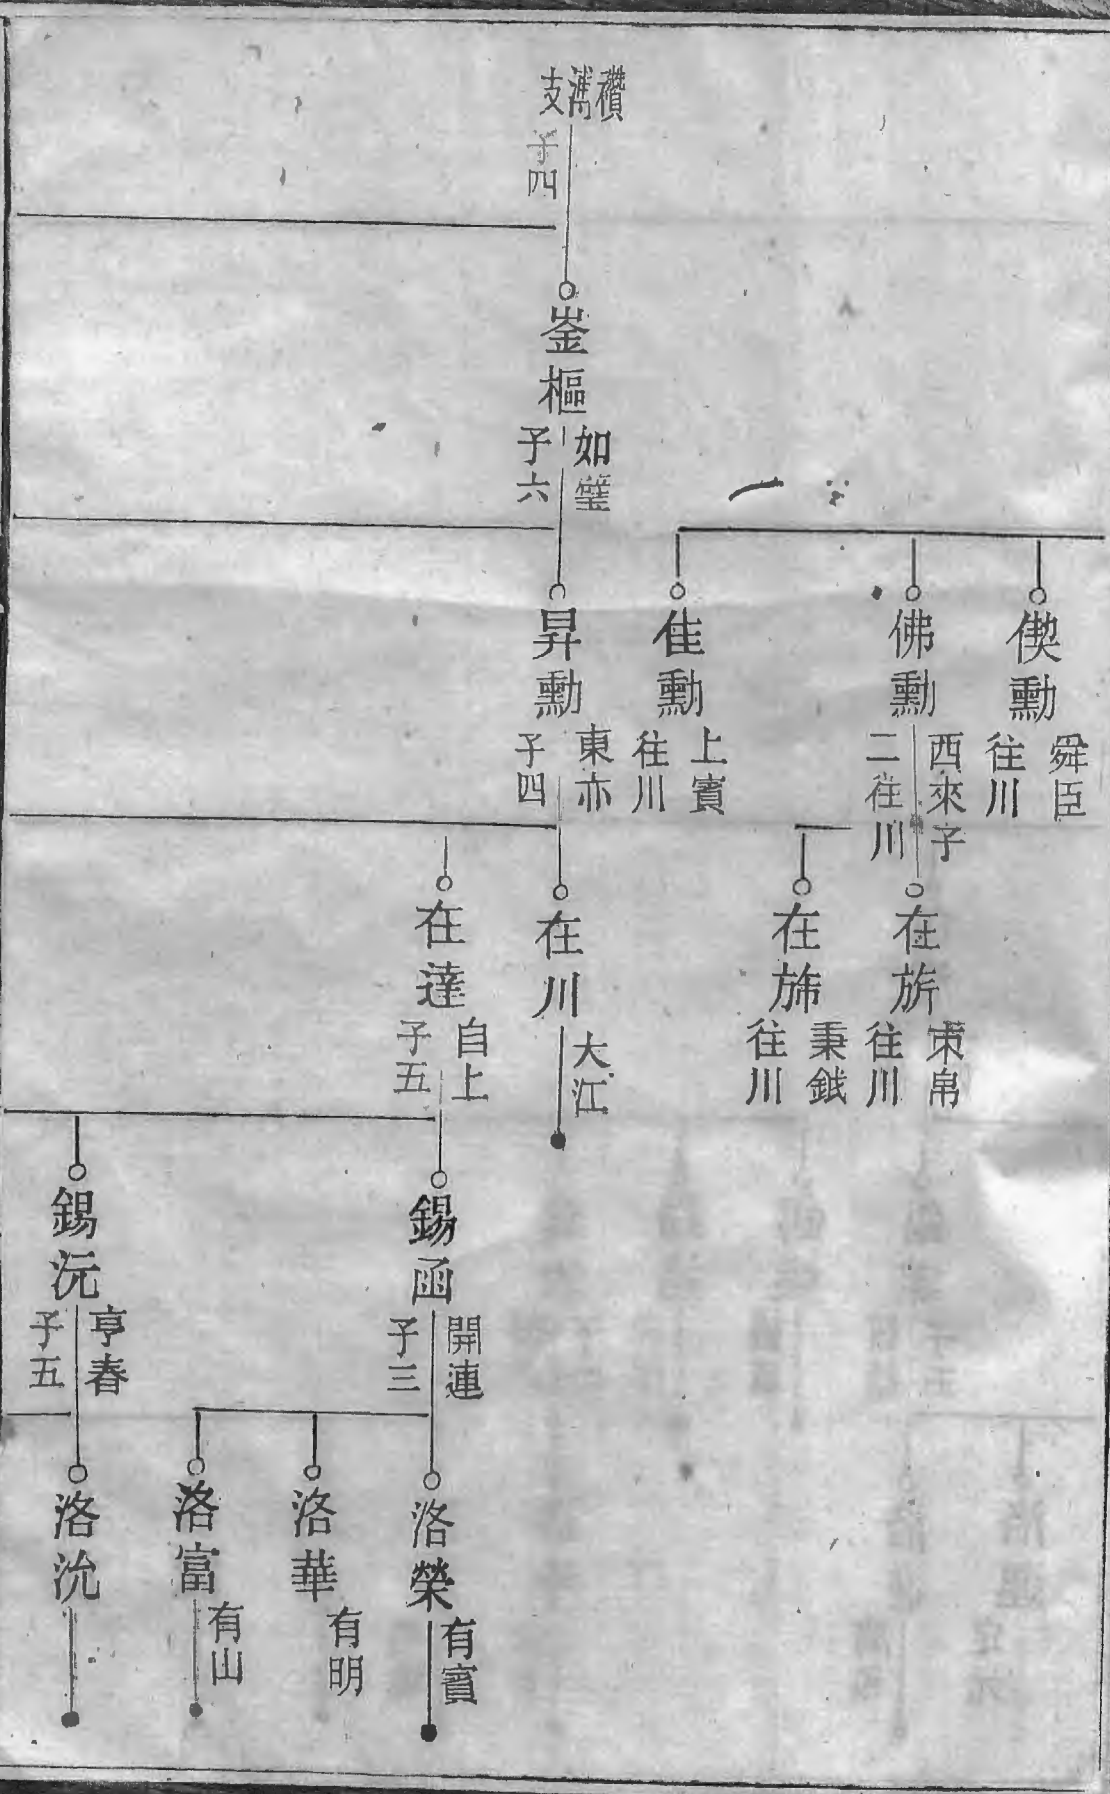 支
子四
崟樞
如璧
子六
偰勳
舜臣
往川
佛勳
西來子
二往川
佳勳
上賓
往川
昇勳
東亦
子四
在旂
束帛
往川
在旆
秉鉞
往川
在川
大江
在達
自上
子五
錫函
開連
子三
錫沅
亨春
子五
洛榮
有賓
洛華
有明
洛富
有山
洛沇